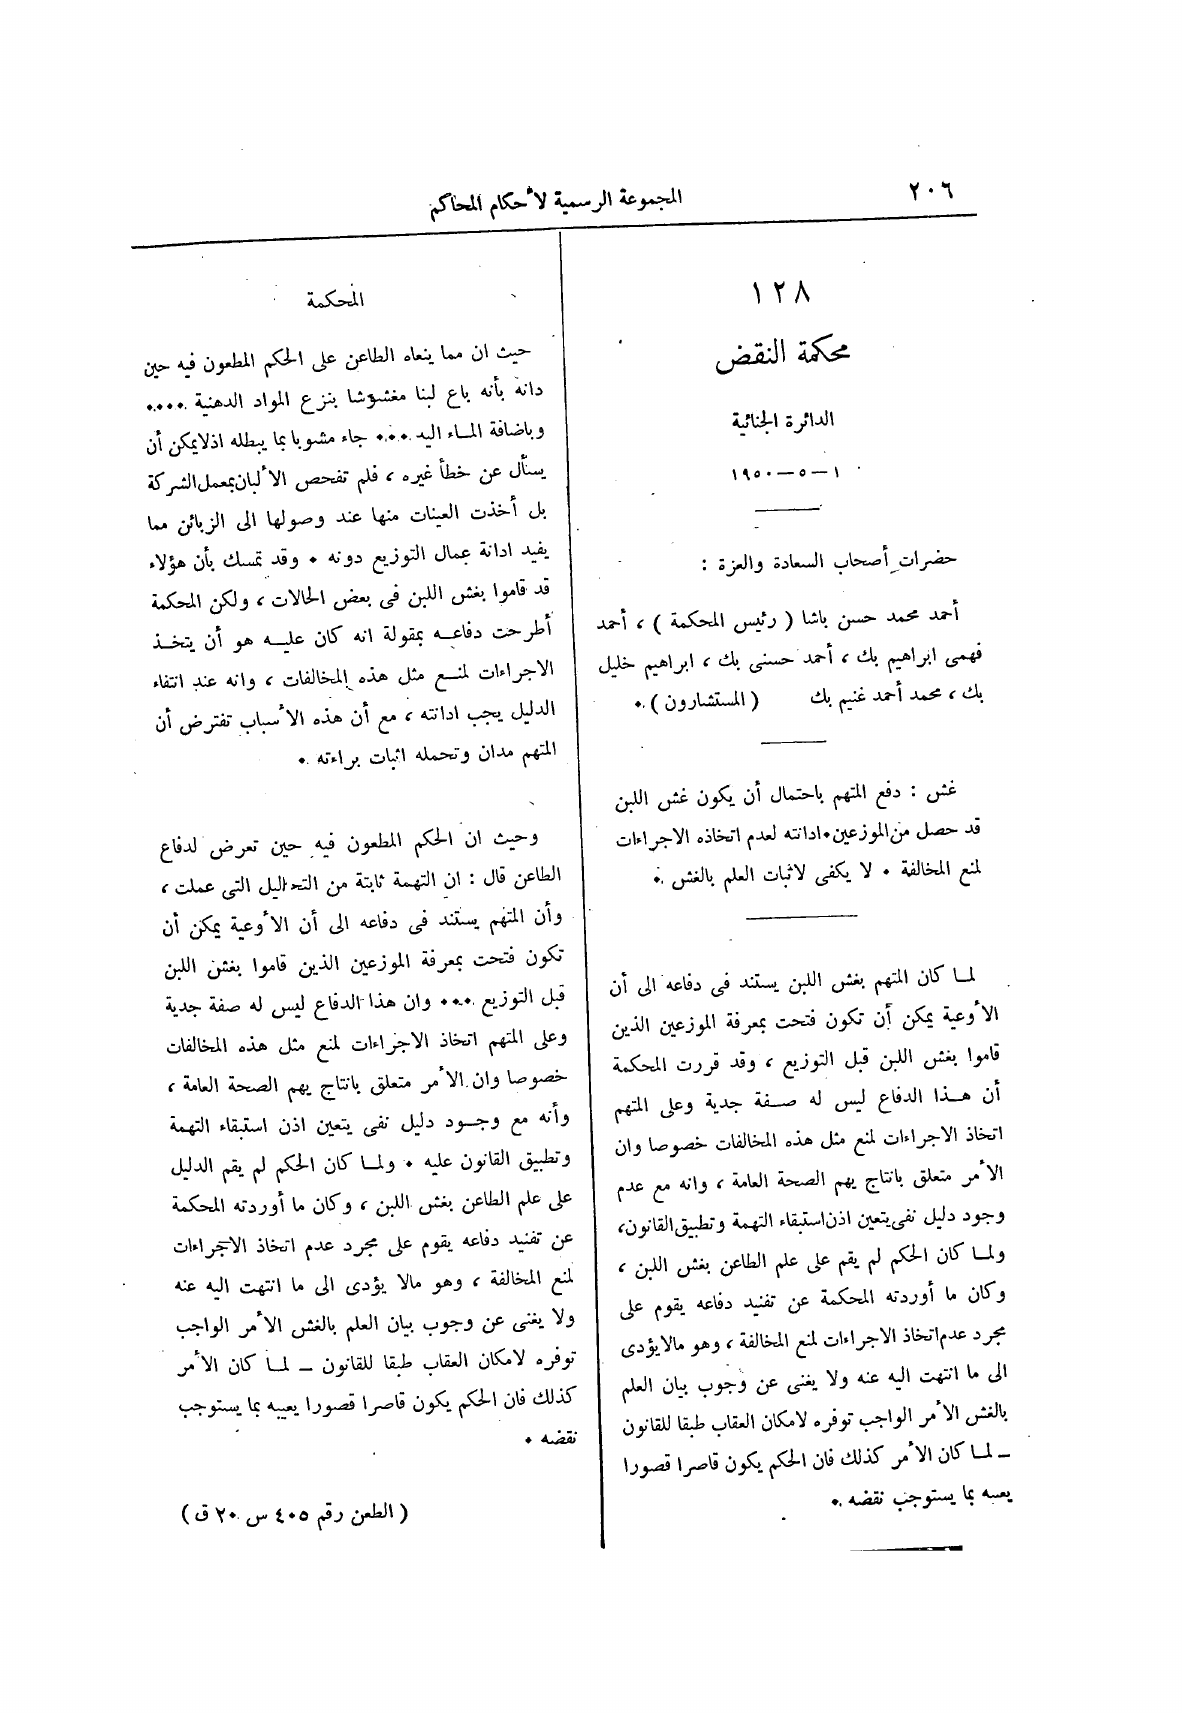 ٢٠٦
المجموعة الرسمية لأحكام المحاكم
١٢٨
محكمة النقض
الدائرة الجنائية
١ – ٥ – ١٩٥٠
حضرات أصحاب السعادة والعزة :
أحمد محمد حسن باشا ( رئيس المحكمة ) ، أحمد
فهمى ابراهيم بك ، أحمد حسنى بك ، ابراهيم خليل
بك ، محمد أحمد غنيم بك ( المستشارون ) .
غش : دفع المتهم باحتمال أن يكون غش اللبن
قد حصل من الموزعين . ادانته لعدم اتخاذه الاجراءات
لمنع المخالفة . لا يكفى لاثبات العلم بالغش .
لما كان المتهم بغش اللبن يستند فى دفاعه الى أن
الأوعية يمكن أن تكون فتحت بمعرفة الموزعين الذين
قاموا بغش اللبن قبل التوزيع ، وقد قررت المحكمة
أن هذا الدفاع ليس له صفة جدية وعلى المتهم
اتخاذ الاجراءات لمنع مثل هذه المخالفات خصوصا وان
الأمر متعلق بانتاج يهم الصحة العامة ، وانه مع عدم
وجود دليل نفى يتعين اذن استبقاء التهمة وتطبيق القانون،
ولما كان الحكم لم يقم على علم الطاعن بغش اللبن ،
وكان ما أوردته المحكمة عن تفنيد دفاعه يقوم على
مجرد عدم اتخاذ الاجراءات لمنع المخالفة ، وهو مالا يؤدى
الى ما انتهت اليه عنه ولا يغنى عن وجوب بيان العلم
بالغش الأمر الواجب توفره لامكان العقاب طبقا للقانون
– لما كان الأمر كذلك فان الحكم يكون قاصرا قصورا
يعيبه بما يستوجب نقضه .
المحكمة
حيث ان مما ينعاه الطاعن على الحكم المطعون فيه حين
دانه بأنه باع لبنا مغشوشا بنزع المواد الدهنية ....
وباضافة الماء اليه .... جاء مشوبا بما يبطله اذ لايمكن أن
يسأل عن خطأ غيره ، فلم تفحص الألبان بمعمل الشركة
بل أخذت العينات منها عند وصولها الى الزبائن مما
يفيد ادانة عمال التوزيع دونه . وقد تمسك بأن هؤلاء
قد قاموا بغش اللبن فى بعض الحالات ، ولكن المحكمة
أطرحت دفاعه بمقولة انه كان عليه هو أن يتخذ
الاجراءات لمنع مثل هذه المخالفات ، وانه عند انتفاء
الدليل يجب ادانته ، مع أن هذه الأسباب تفترض أن
المتهم مدان وتحمله اثبات براءته .
وحيث ان الحكم المطعون فيه حين تعرض لدفاع
الطاعن قال : ان التهمة ثابتة من التحاليل التى عملت ،
وأن المتهم يستند فى دفاعه الى أن الأوعية يمكن أن
تكون فتحت بمعرفة الموزعين الذين قاموا بغش اللبن
قبل التوزيع .... وان هذا الدفاع ليس له صفة جدية
وعلى المتهم اتخاذ الاجراءات لمنع مثل هذه المخالفات
خصوصا وان الأمر متعلق بانتاج يهم الصحة العامة ،
وأنه مع وجود دليل نفى يتعين اذن استبقاء التهمة
وتطبيق القانون عليه . ولما كان الحكم لم يقم الدليل
على علم الطاعن بغش اللبن ، وكان ما أوردته المحكمة
عن تفنيد دفاعه يقوم على مجرد عدم اتخاذ الاجراءات
لمنع المخالفة ، وهو مالا يؤدى الى ما انتهت اليه عنه
ولا يغنى عن وجوب بيان العلم بالغش الأمر الواجب
توفره لامكان العقاب طبقا للقانون – لما كان الأمر
كذلك فان الحكم يكون قاصرا قصورا يعيبه بما يستوجب
نقضه .
( الطعن رقم ٤٠٥ س ٢٠ ق )